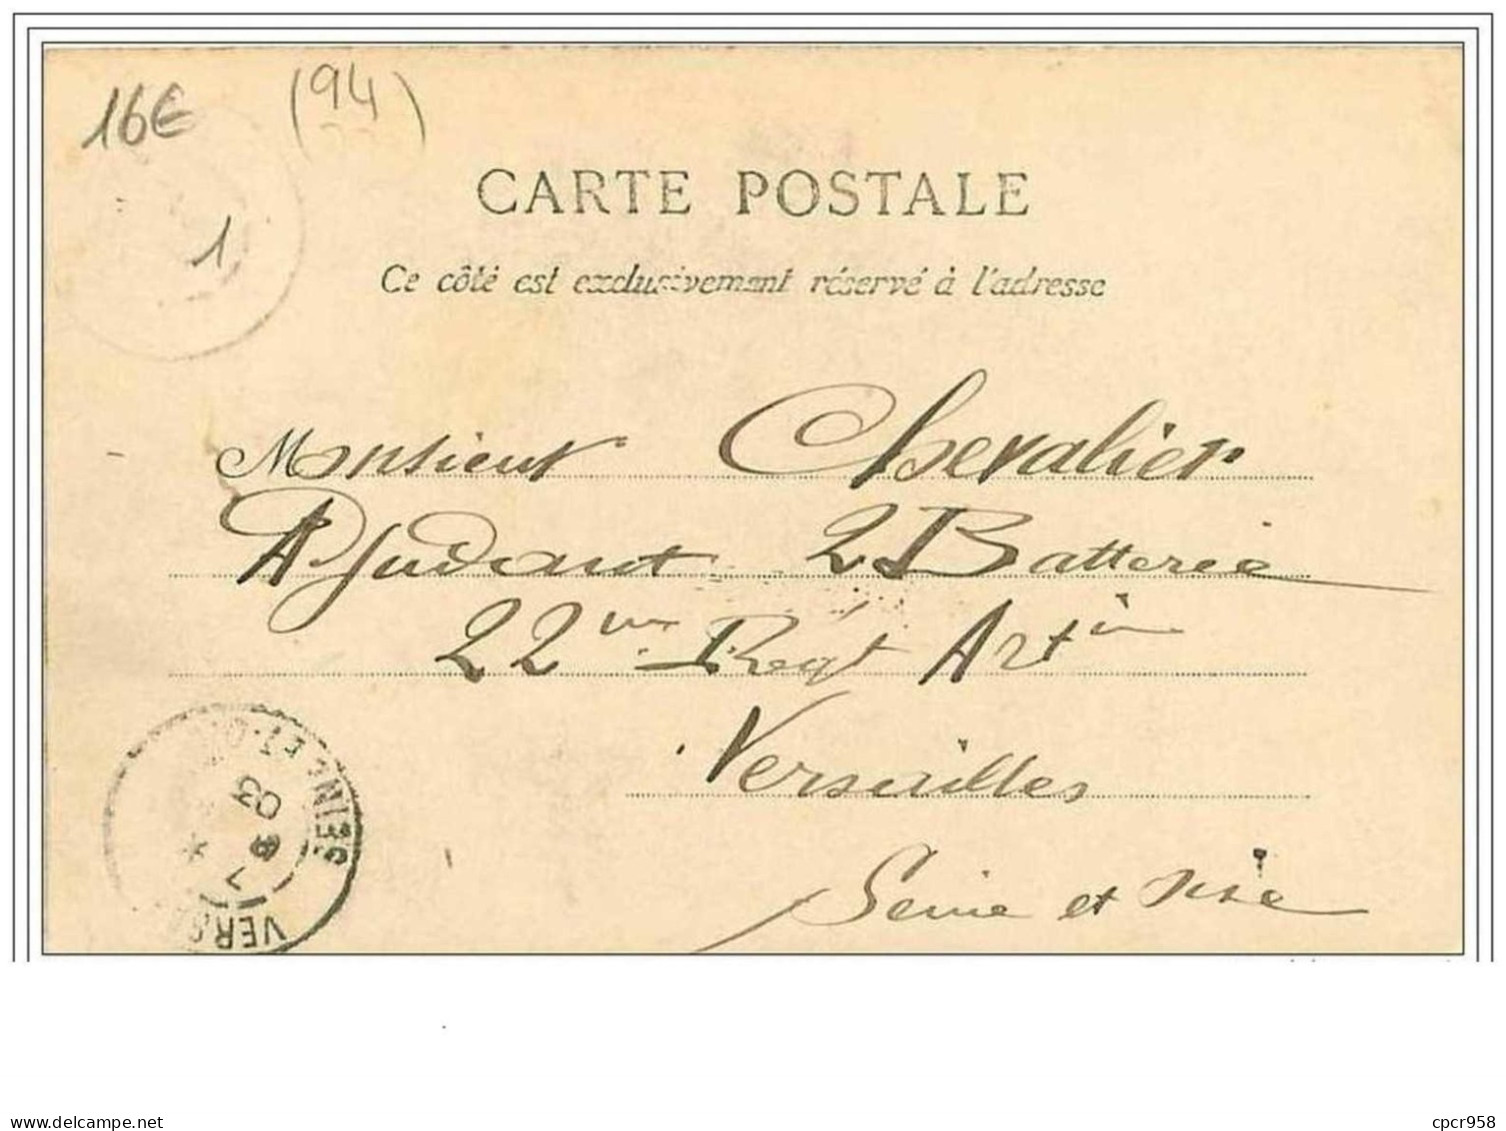 16€ (94)
1
CARTE POSTALE
Ce côté est exclusivement réservé à l'adresse
Monsieur Chevalier
Adjudant 2 Batterie
22me Regt Art ie
Versailles
Seine et Oise
SEINE-ET-O
VERS
7
03
delcampe.net
cpcr958